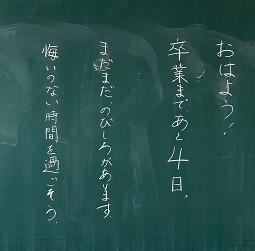 おはよう！
卒業まであと4日。
まだまだ、のびしろがあります
悔いのない時間を過ごそう。